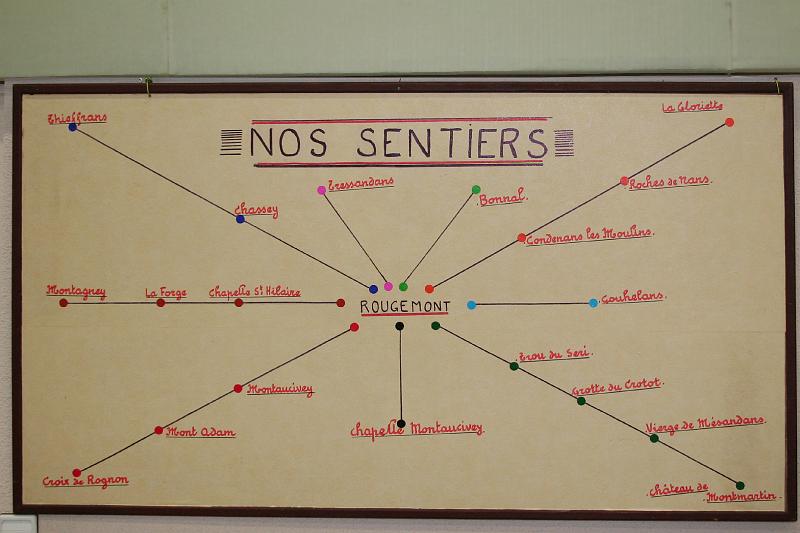 NOS SENTIERS
Thieffrans
La Gloriette
Tressandans
Roches de Nans.
Bonnal.
Chassey
Condenans les Moulins.
Montagney
La Forge
Chapelle St Hilaire
ROUGEMONT
Gouhelans.
Trou du Seri.
Montaucivey
Grotte du Crotot.
Mont Adam
Chapelle Montaucivey.
Vierge de Mésandans.
Croix de Rognon
Château de
Montmartin.